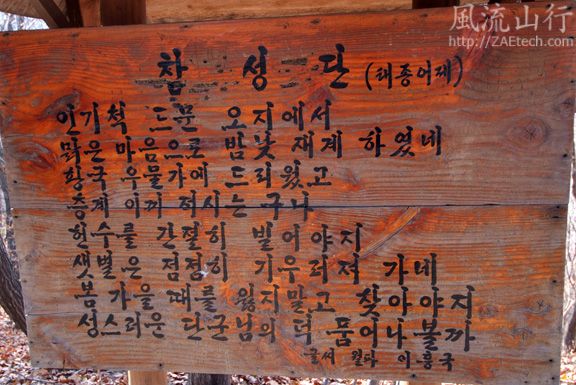 風流山行
http://ZAEtech.com
참성단 (태종어제)
인기척 드문 오지에서
맑은 마음으로 밤낮 재계 하였네
황국 우물가에 드리웠고
층계 이끼 적시는구나
헌수를 간절히 빌어야지
샛별은 점점히 기우러져 가네
봄 가을 때를 잃지말고 찾아야지
성스러운 단군님의 덕 품어나 볼까
글서 월타 이흥국